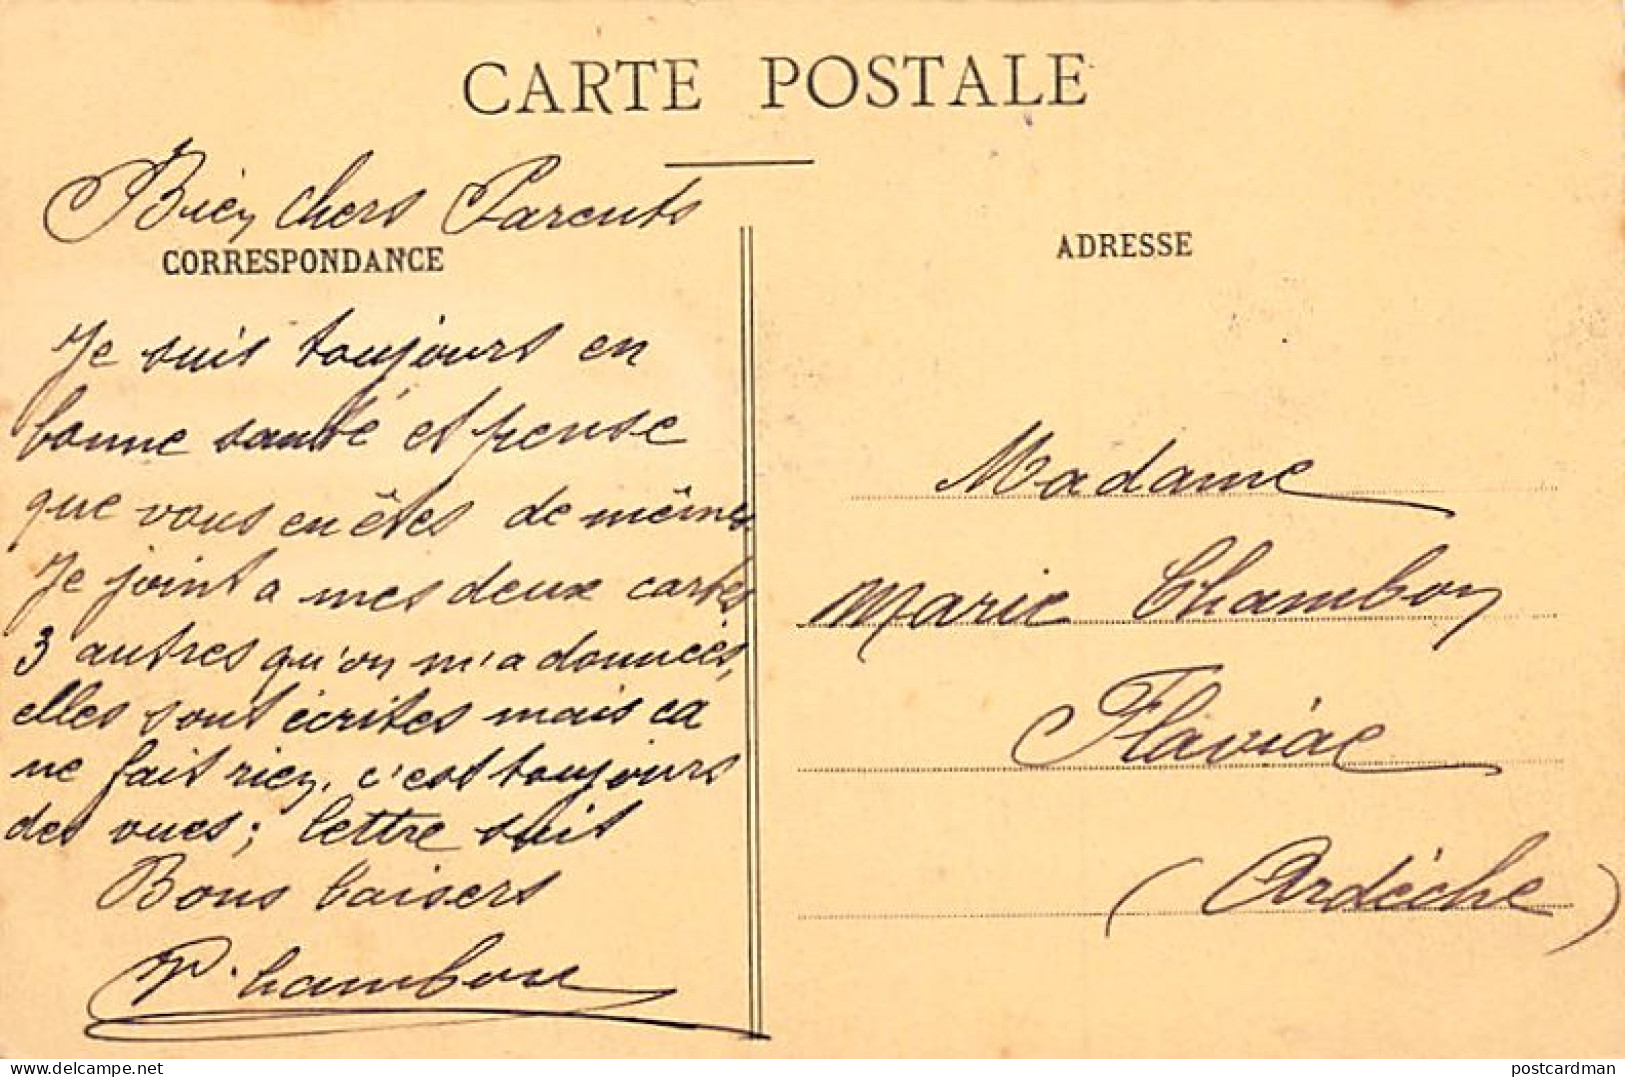 CARTE POSTALE
Bien chers Parents
CORRESPONDANCE
Je suis toujours en
bonne santé et pense
que vous en êtes de même,
Je joint a mes deux cartes
3 autres qu'on m'a données,
elles sont écrites mais ca
ne fait rien, c'est toujours
des vues; lettre suit
Bons baisers
P. Chambon
ADRESSE
Madame
Marie Chambon
Flaviac
(Ardèche)
delcampe.net
postcardman